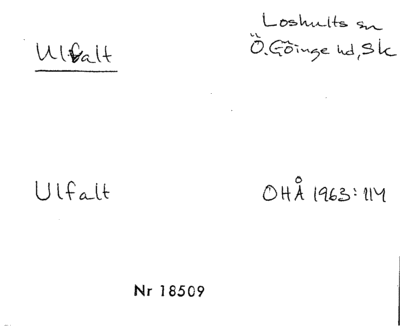 Loshults sn
Ulfalt
Ö. Göinge hd, Sk
Ulfalt
OHÅ 1963: 114
Nr 18509